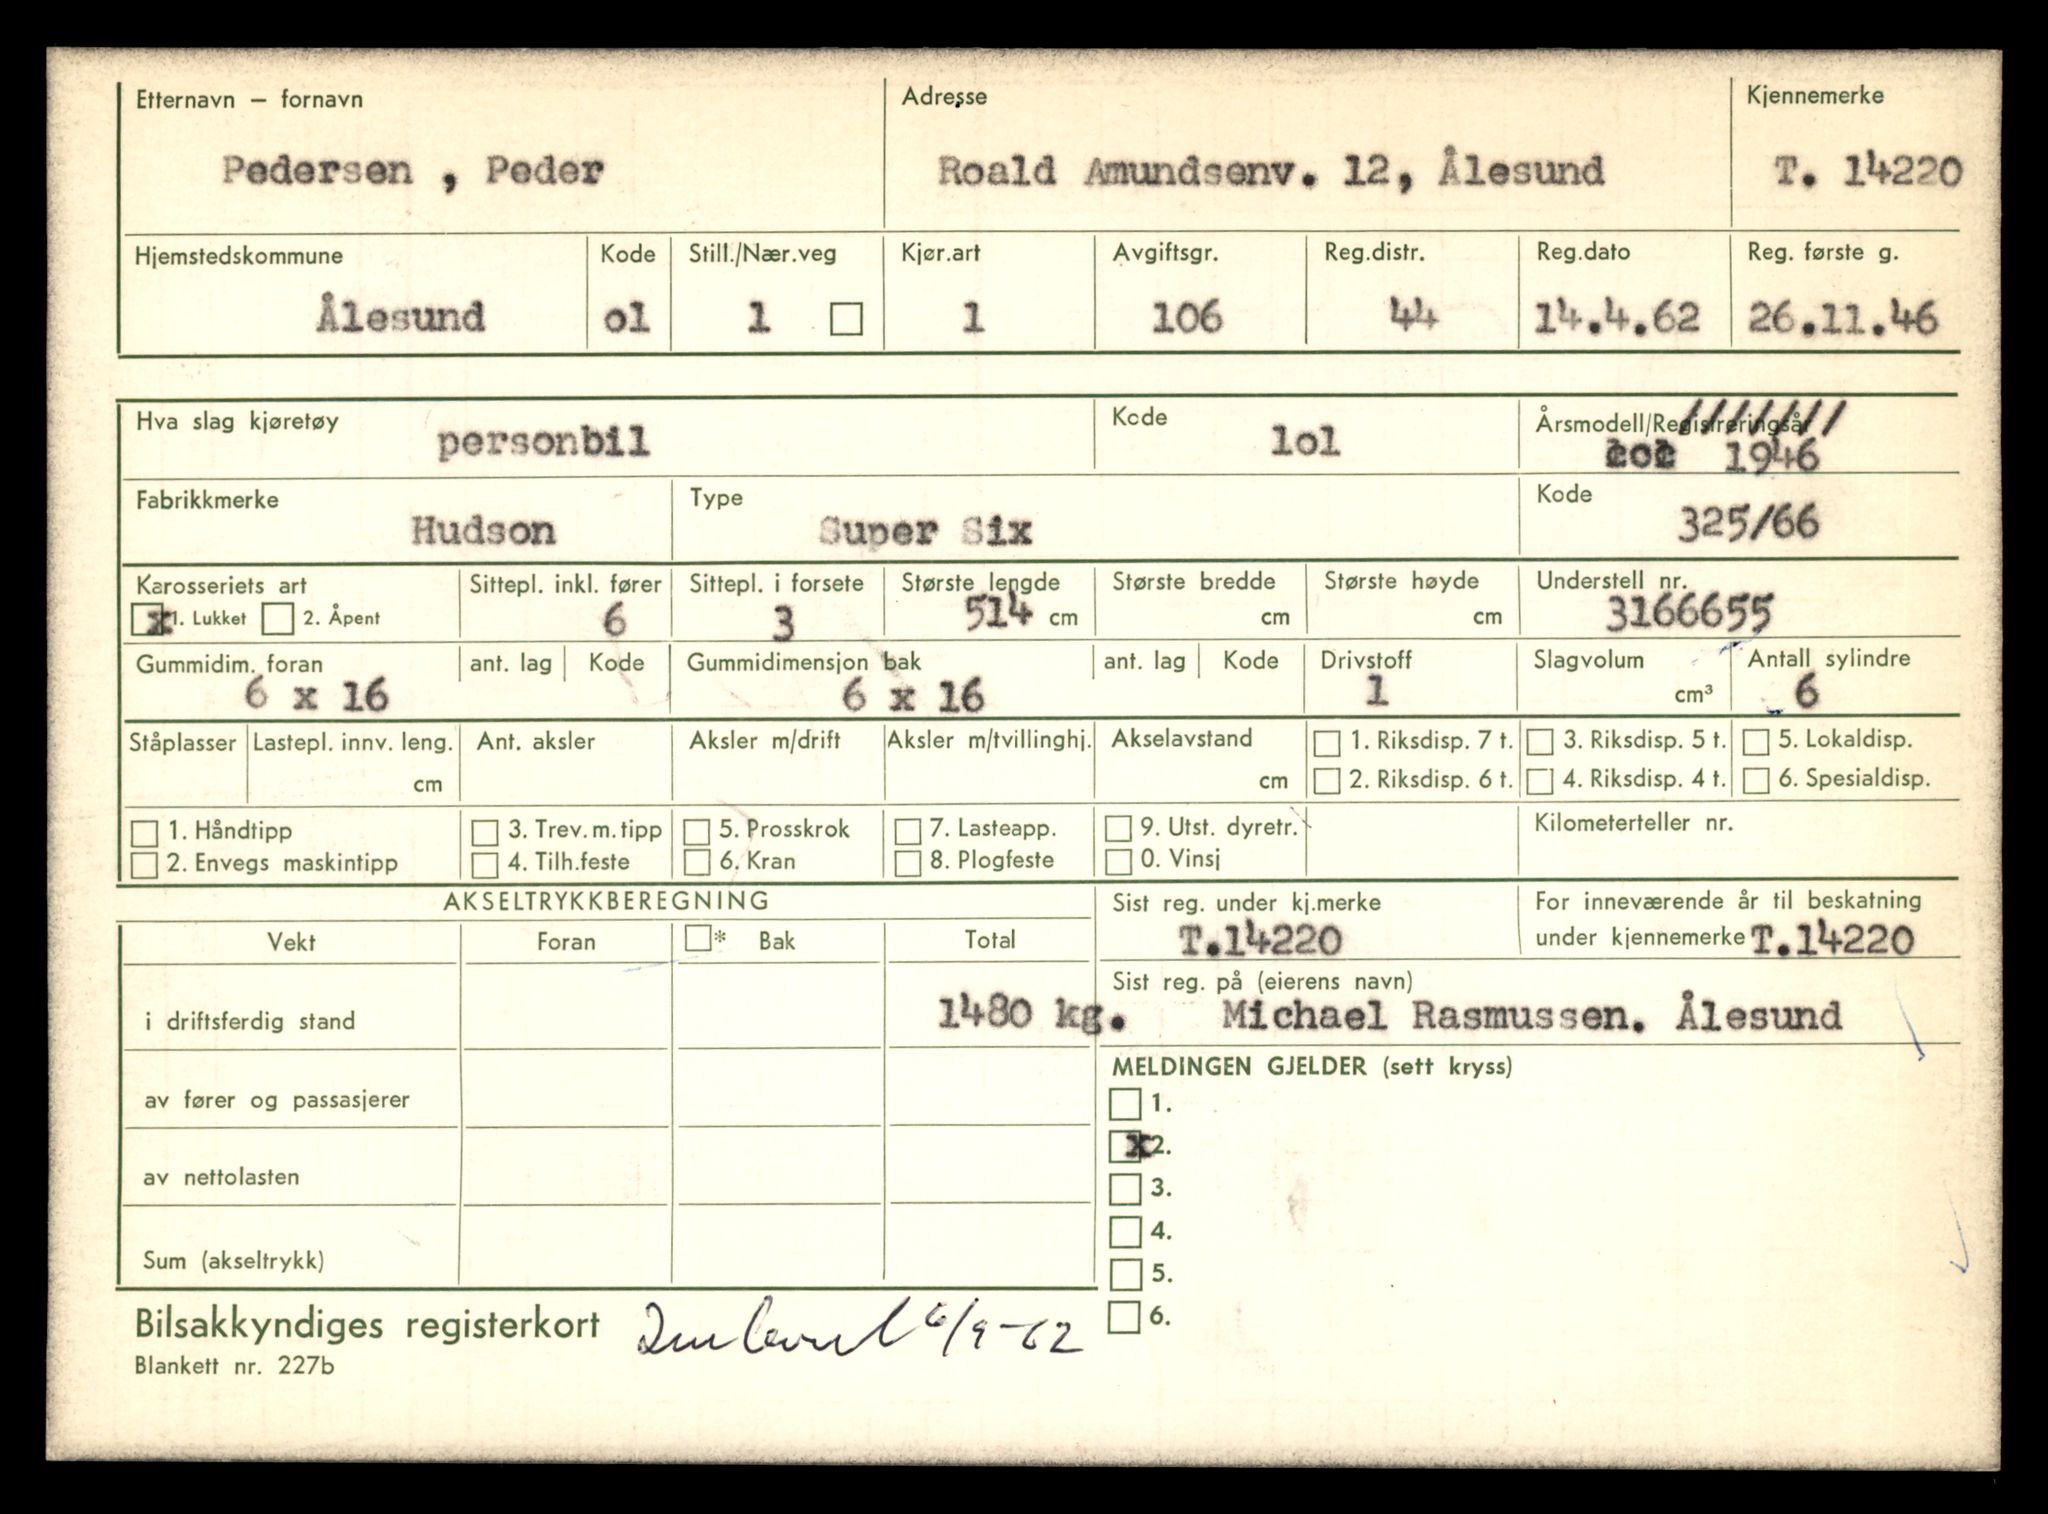 Etternavn – fornavn Adresse Kjennemerke
Pedersen , Peder Roald Amundsenv. 12, Ålesund T. 14220
Hjemstedskommune Kode Still./Nær.veg Kjør.art Avgiftsgr. Reg.distr. Reg.dato Reg. første g.
Ålesund ol 1 1 106 44 14.4.62 26.11.46
Hva slag kjøretøy Kode Årsmodell/Registreringsår
personbil lol 1946
Fabrikkmerke Type Kode
Hudson Super Six 325/66
Karosseriets art Sittepl. inkl. fører Sittepl. i forsete Største lengde Største bredde Største høyde Understell nr.
x 1. Lukket 2. Åpent 6 3 514 cm cm cm 3166655
Gummidim. foran ant. lag Kode Gummidimensjon bak ant. lag Kode Drivstoff Slagvolum Antall sylindre
6 x 16 6 x 16 1 cm³ 6
Ståplasser Lastepl. innv. leng. Ant. aksler Aksler m/drift Aksler m/tvillinghj. Akselavstand 1. Riksdisp. 7 t. 3. Riksdisp. 5 t. 5. Lokaldisp.
cm cm 2. Riksdisp. 6 t. 4. Riksdisp. 4 t. 6. Spesialdisp.
1. Håndtipp 3. Trev. m. tipp 5. Prosskrok 7. Lasteapp. 9. Utst. dyretr. Kilometerteller nr.
2. Envegs maskintipp 4. Tilh.feste 6. Kran 8. Plogfeste 0. Vinsj
AKSELTRYKKBEREGNING Sist reg. under kj.merke For inneværende år til beskatning
Vekt Foran * Bak Total T.14220 under kjennemerke T.14220
Sist reg. på (eierens navn)
i driftsferdig stand 1480 kg. Michael Rasmussen. Ålesund
MELDINGEN GJELDER (sett kryss)
av fører og passasjerer 1.
x 2.
av nettolasten 3.
4.
Sum (akseltrykk) 5.
Bilsakkyndiges registerkort 6/9-62 6.
Blankett nr. 227b